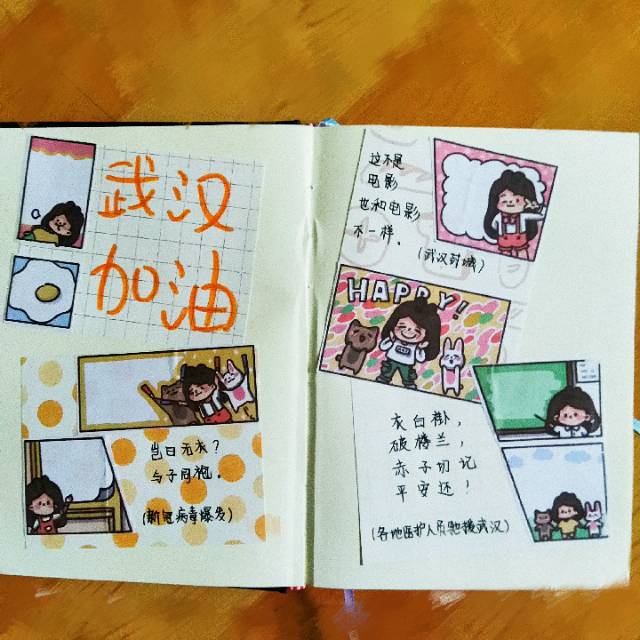 武汉
加油
岂曰无衣？
与子同袍。
(新冠病毒爆发)
这不是
电影
也和电影
不一样。
(武汉封城)
HAPPY!
灰白褂，
破楼兰，
赤子切记
平安还！
(各地医护人员驰援武汉)